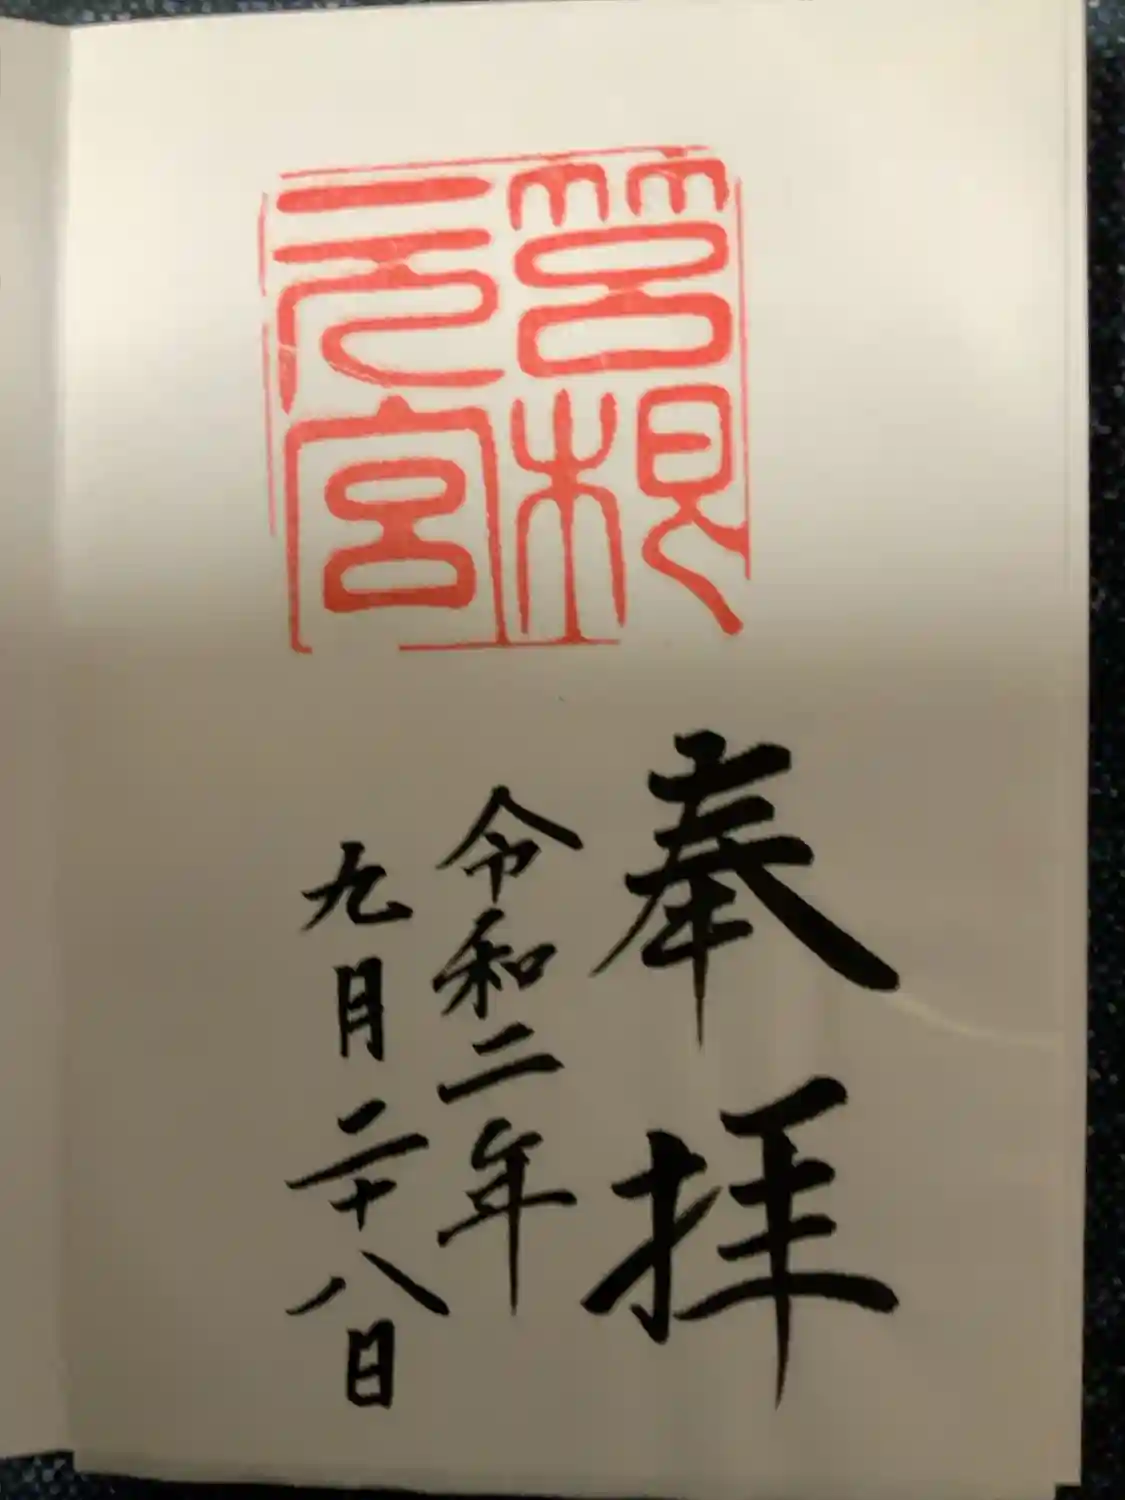 筥根
元宮
奉拝
令和二年
九月二十八日